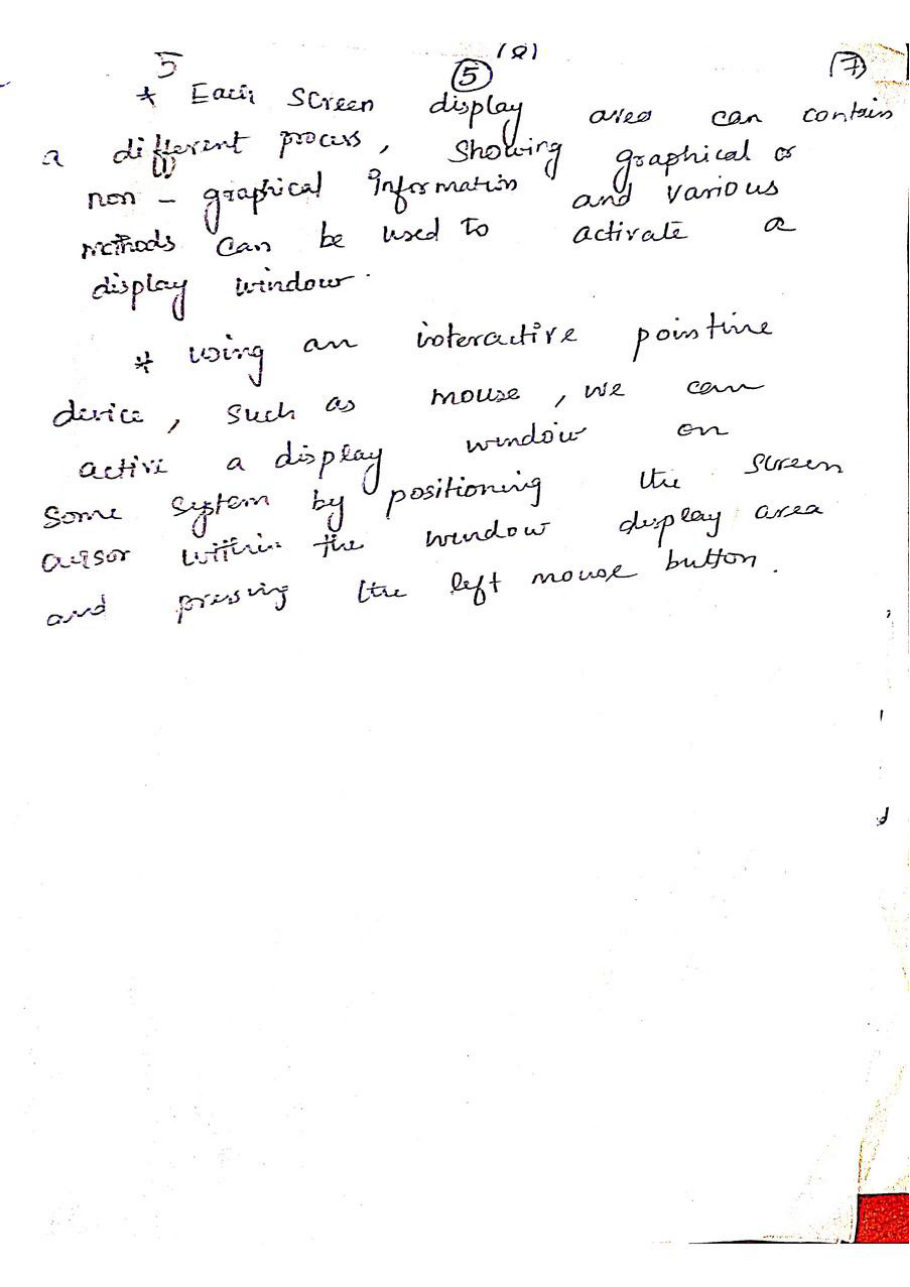 5 (8)
5 7
* Each screen display area can contain
a different process, showing graphical or
non - graphical Information and various
methods can be used to activate a
display window.
* using an interactive pointine
device, such as mouse, we can
active a display window on
some system by positioning the screen
cursor within the window display area
and pressing the left mouse button.